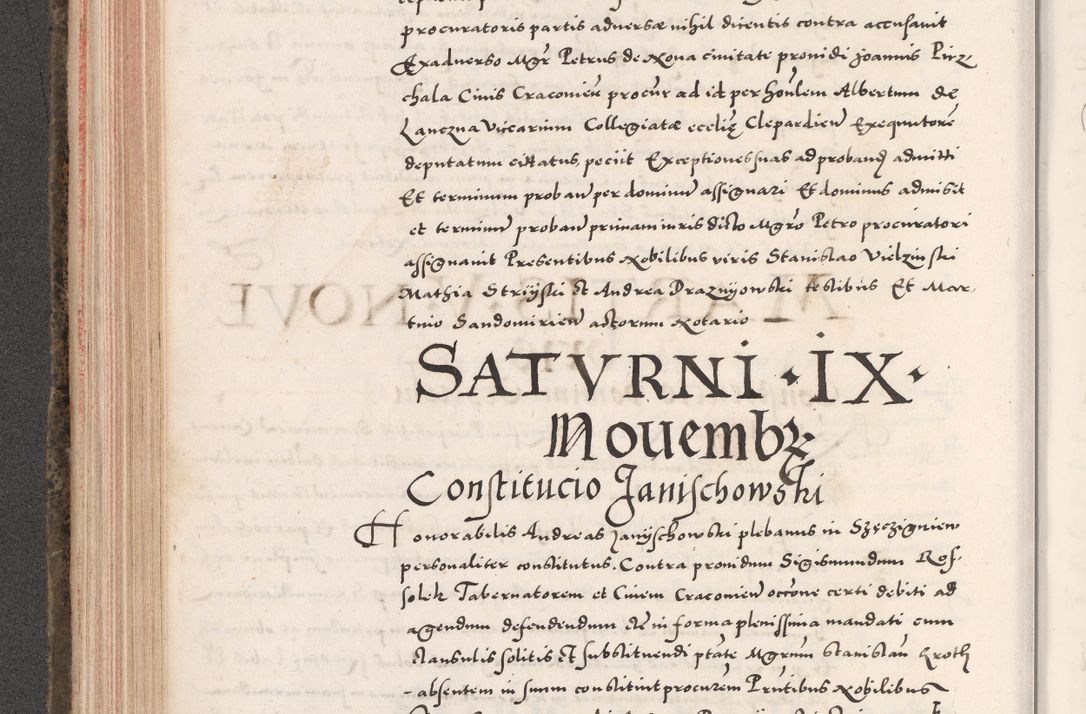 procuratoris partis adversæ nihil dicentis contra accusavit
Exadverso Mgr̄ Petrus de Nova civitate providi Joannis Pirz
chala Civis Cracovień procur̄ ad id per hon̄lem Albertum de
Lanczna Vicarium Collegiatæ eccliæ Clepardień Exequutorē
deputatum citatus, peciit Exceptiones suas ad proband̄ admitti
Et terminum proband̄ per dominum assignari Et dominus admisit
et terminū proband̄ primam iuris dicto Mgr̄o Petro procuratori
assignavit Presentibus Nobilibus viris Stanislao Vielzinski
Mathia Strÿiski et Andrea Draznyowski testibus Et Mar
tino Sandomirień actorum Notario
SATVRNI · IX ·
Nouembꝝ
Constitucio Janischowski
Honorabilis Andreas Janÿschowski plebanus in Szczigniew
personaliter constitutus. Contra providum Sigismundum Ros-
solek Tabernatorem et Civem Cracovień occōne certi debiti ad
agendum defendendum etc̄ in forma plenissima mandati cum
clausulis solitis et substituendi ptāte Mgrum Stanislaū Kroth
-absentem in suum constituit procurem̄ Pr̄ntibus Nobilibus